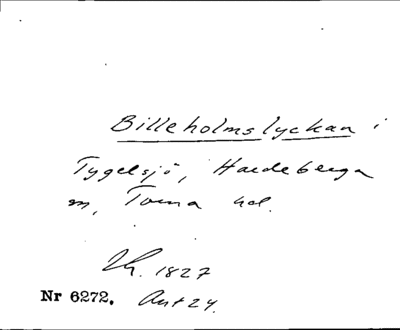 Billeholmslyckan i
Tygelsjö, Hardeberga
sn, Torna hd.
Lh. 1827
Nr 6272. Ant 24.